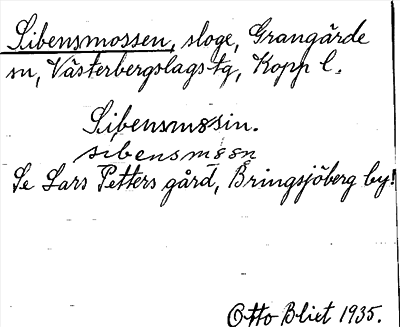 Sibensmossen, sloge, Grangärde
sn, Västerbergslags tg, Kopp l.
Sibensmosin.
sibensmosn
Se Lars Petters gård, Bringsjöberg by!
Otto Blixt 1935.